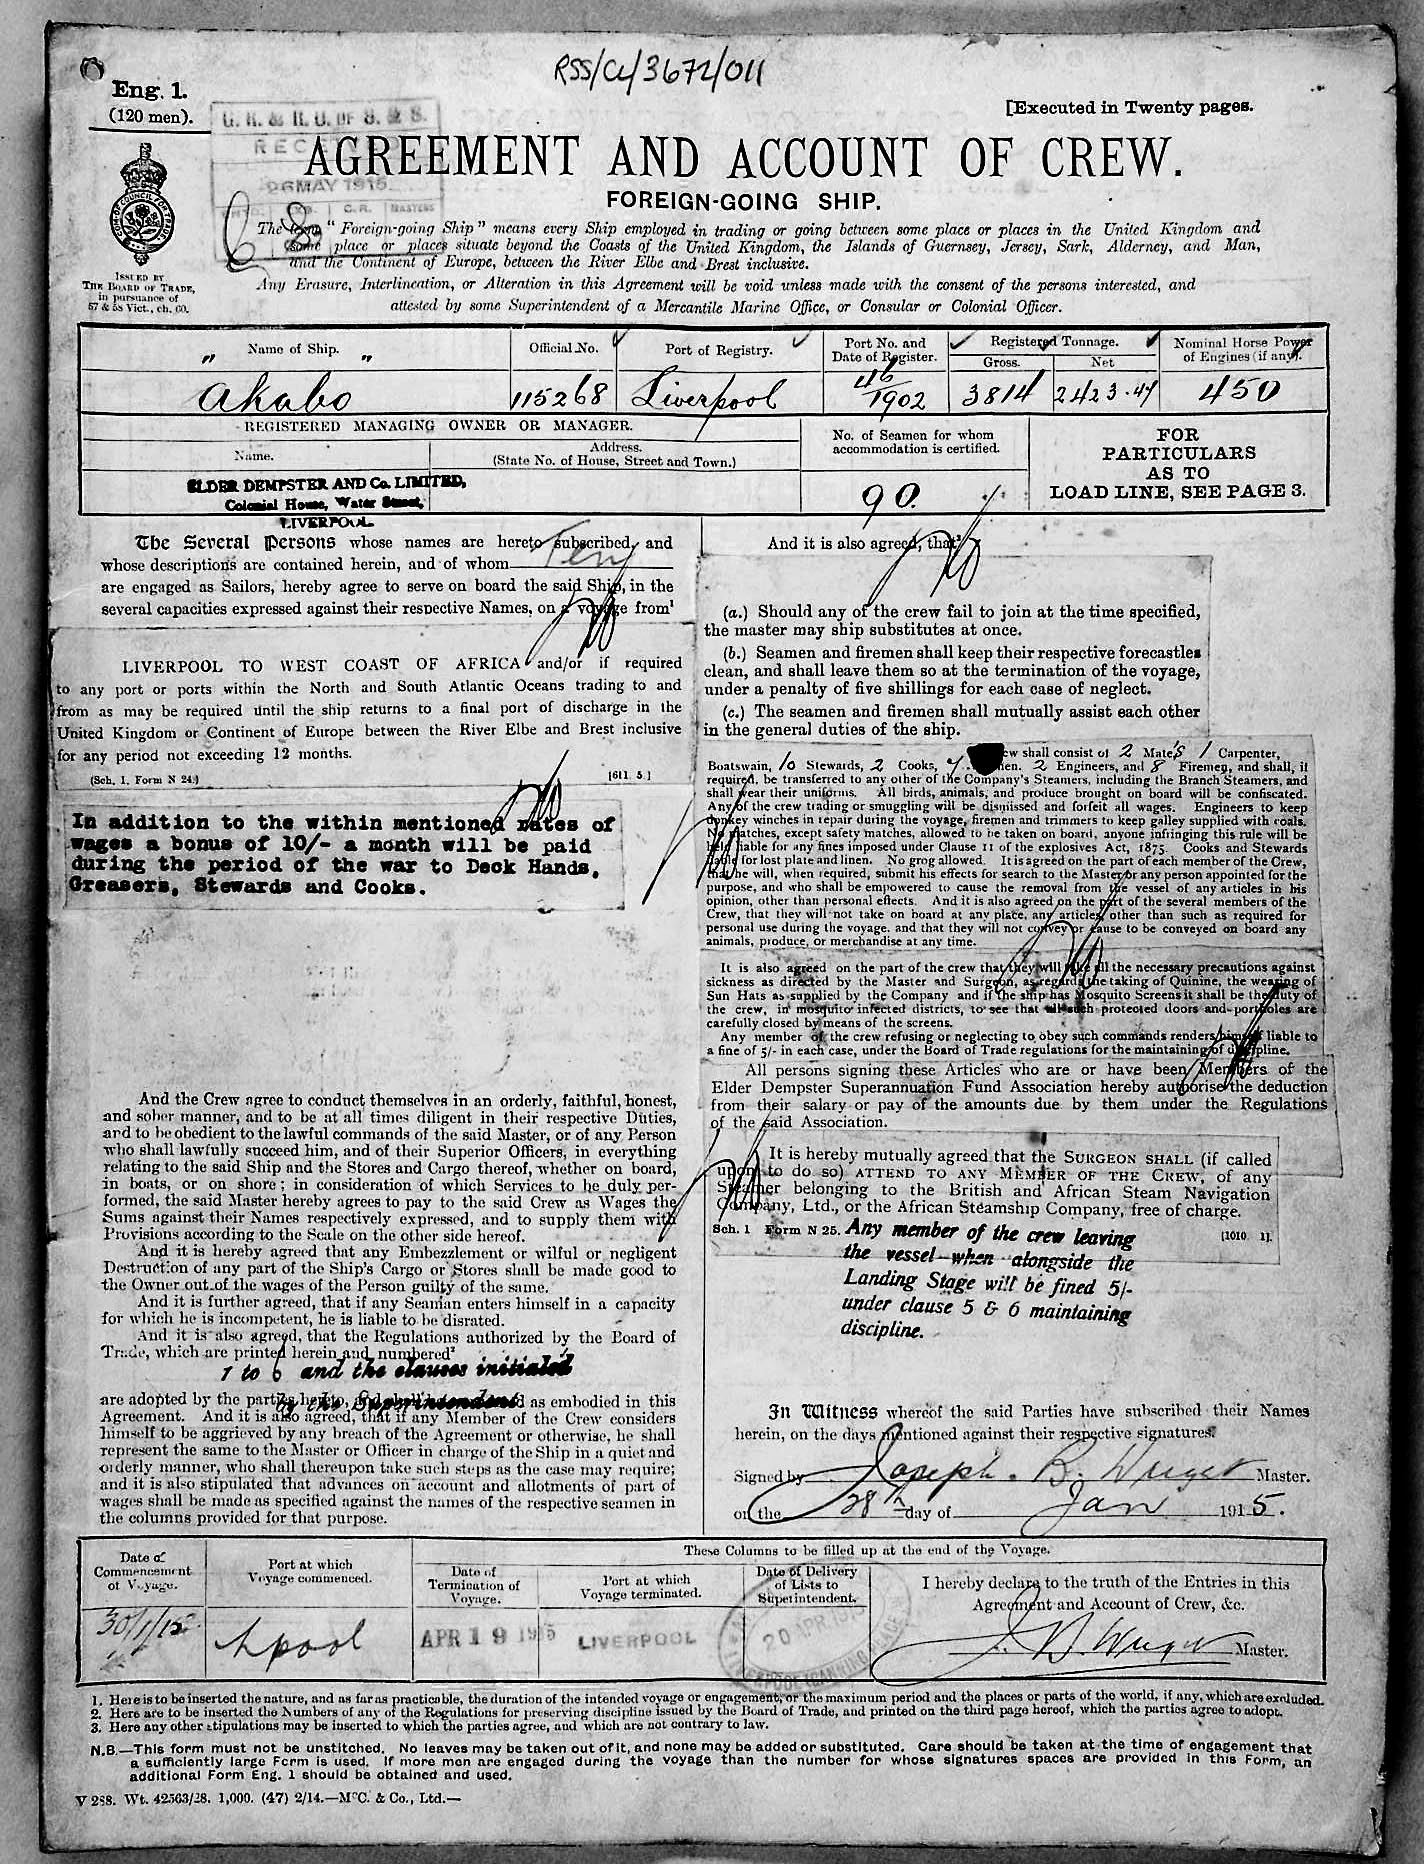 RSS/CL/3672/011
Eng. 1.
(120 men).
[Executed in Twenty pages.
G. R. & R. O. OF S. & S.
RECEIVED
26 MAY 1915
C.R. MASTERS
AGREEMENT AND ACCOUNT OF CREW.
FOREIGN-GOING SHIP.
ISSUED BY
THE BOARD OF TRADE,
in pursuance of
57 & 58 Vict., ch. 60.
The term "Foreign-going Ship" means every Ship employed in trading or going between some place or places in the United Kingdom and
some place or places situate beyond the Coasts of the United Kingdom, the Islands of Guernsey, Jersey, Sark, Alderney, and Man,
and the Continent of Europe, between the River Elbe and Brest inclusive.
Any Erasure, Interlineation, or Alteration in this Agreement will be void unless made with the consent of the persons interested, and
attested by some Superintendent of a Mercantile Marine Office, or Consular or Colonial Officer.
Name of Ship.
Official No.
Port of Registry.
Port No. and
Date of Register.
Registered Tonnage.
Gross.
Net
Nominal Horse Power
of Engines (if any).
" "
Akabo
115268
Liverpool
46/1902
3814
2423.47
450
REGISTERED MANAGING OWNER OR MANAGER.
Name.
Address.
(State No. of House, Street and Town.)
No. of Seamen for whom
accommodation is certified.
FOR
PARTICULARS
AS TO
LOAD LINE, SEE PAGE 3.
ELDER DEMPSTER AND Co. LIMITED,
Colonial House, Water Street,
LIVERPOOL
90.
The Several Persons whose names are hereto subscribed, and
whose descriptions are contained herein, and of whom Ten
are engaged as Sailors, hereby agree to serve on board the said Ship, in the
several capacities expressed against their respective Names, on a voyage from¹
LIVERPOOL TO WEST COAST OF AFRICA and/or if required
to any port or ports within the North and South Atlantic Oceans trading to and
from as may be required until the ship returns to a final port of discharge in the
United Kingdom or Continent of Europe between the River Elbe and Brest inclusive
for any period not exceeding 12 months.
(Sch. 1. Form N 24.)
[611. 5.]
In addition to the within mentioned rates of
wages a bonus of 10/- a month will be paid
during the period of the war to Deck Hands,
Greasers, Stewards and Cooks.
And the Crew agree to conduct themselves in an orderly, faithful, honest,
and sober manner, and to be at all times diligent in their respective Duties,
and to be obedient to the lawful commands of the said Master, or of any Person
who shall lawfully succeed him, and of their Superior Officers, in everything
relating to the said Ship and the Stores and Cargo thereof, whether on board,
in boats, or on shore; in consideration of which Services to be duly per-
formed, the said Master hereby agrees to pay to the said Crew as Wages the
Sums against their Names respectively expressed, and to supply them with
Provisions according to the Scale on the other side hereof.
And it is hereby agreed that any Embezzlement or wilful or negligent
Destruction of any part of the Ship's Cargo or Stores shall be made good to
the Owner out of the wages of the Person guilty of the same.
And it is further agreed, that if any Seaman enters himself in a capacity
for which he is incompetent, he is liable to be disrated.
And it is also agreed, that the Regulations authorized by the Board of
Trade, which are printed herein and numbered²
1 to 6 and the clauses initialed
by the Superintendent
are adopted by the parties hereto, and shall be considered as embodied in this
Agreement. And it is also agreed, that if any Member of the Crew considers
himself to be aggrieved by any breach of the Agreement or otherwise, he shall
represent the same to the Master or Officer in charge of the Ship in a quiet and
orderly manner, who shall thereupon take such steps as the case may require;
and it is also stipulated that advances on account and allotments of part of
wages shall be made as specified against the names of the respective seamen in
the columns provided for that purpose.
And it is also agreed, that³
(a.) Should any of the crew fail to join at the time specified,
the master may ship substitutes at once.
(b.) Seamen and firemen shall keep their respective forecastles
clean, and shall leave them so at the termination of the voyage,
under a penalty of five shillings for each case of neglect.
(c.) The seamen and firemen shall mutually assist each other
in the general duties of the ship.
ew shall consist of 2 Mate's 1 Carpenter,
Boatswain, 10 Stewards, 2 Cooks, 7 men. 2 Engineers, and 8 Firemen, and shall, if
required, be transferred to any other of the Company's Steamers, including the Branch Steamers, and
shall wear their uniforms. All birds, animals, and produce brought on board will be confiscated.
Any of the crew trading or smuggling will be dismissed and forfeit all wages. Engineers to keep
donkey winches in repair during the voyage, firemen and trimmers to keep galley supplied with coals.
No matches, except safety matches, allowed to be taken on board, anyone infringing this rule will be
held liable for any fines imposed under Clause 11 of the explosives Act, 1875. Cooks and Stewards
liable for lost plate and linen. No grog allowed. It is agreed on the part of each member of the Crew,
that he will, when required, submit his effects for search to the Master or any person appointed for the
purpose, and who shall be empowered to cause the removal from the vessel of any articles in his
opinion, other than personal effects. And it is also agreed on the part of the several members of the
Crew, that they will not take on board at any place, any articles other than such as required for
personal use during the voyage, and that they will not convey or cause to be conveyed on board any
animals, produce, or merchandise at any time.
It is also agreed on the part of the crew that they will take all the necessary precautions against
sickness as directed by the Master and Surgeon, as regards the taking of Quinine, the wearing of
Sun Hats as supplied by the Company and if the ship has Mosquito Screens it shall be the duty of
the crew, in mosquito infected districts, to see that all such protected doors and portholes are
carefully closed by means of the screens.
Any member of the crew refusing or neglecting to obey such commands renders himself liable to
a fine of 5/- in each case, under the Board of Trade regulations for the maintaining of discipline.
All persons signing these Articles who are or have been Members of the
Elder Dempster Superannuation Fund Association hereby authorise the deduction
from their salary or pay of the amounts due by them under the Regulations
of the said Association.
It is hereby mutually agreed that the SURGEON SHALL (if called
upon to do so) ATTEND TO ANY MEMBER OF THE CREW, of any
Steamer belonging to the British and African Steam Navigation
Company, Ltd., or the African Steamship Company, free of charge.
Sch. 1 Form N 25.
[1010. 1].
Any member of the crew leaving
the vessel when alongside the
Landing Stage will be fined 5/-
under clause 5 & 6 maintaining
discipline.
In Witness whereof the said Parties have subscribed their Names
herein, on the days mentioned against their respective signatures.
Signed by Joseph. B. Wright Master.
on the 28th day of Jan 1915.
Date of
Commencement
of Voyage.
Port at which
Voyage commenced.
These Columns to be filled up at the end of the Voyage.
Date of
Termination of
Voyage.
Port at which
Voyage terminated.
Date of Delivery
of Lists to
Superintendent.
I hereby declare to the truth of the Entries in this
Agreement and Account of Crew, &c.
30/1/15
Lpool
APR 19 1915
LIVERPOOL
20 APR 1915
J. B. Wright Master.
1. Here is to be inserted the nature, and as far as practicable, the duration of the intended voyage or engagement, or the maximum period and the places or parts of the world, if any, which are excluded.
2. Here are to be inserted the Numbers of any of the Regulations for preserving discipline issued by the Board of Trade, and printed on the third page hereof, which the parties agree to adopt.
3. Here any other stipulations may be inserted to which the parties agree, and which are not contrary to law.
N.B.—This form must not be unstitched. No leaves may be taken out of it, and none may be added or substituted. Care should be taken at the time of engagement that
a sufficiently large Form is used. If more men are engaged during the voyage than the number for whose signatures spaces are provided in this Form, an
additional Form Eng. 1 should be obtained and used.
V 288. Wt. 42563/28. 1,000. (47) 2/14.—McC. & Co., Ltd.—